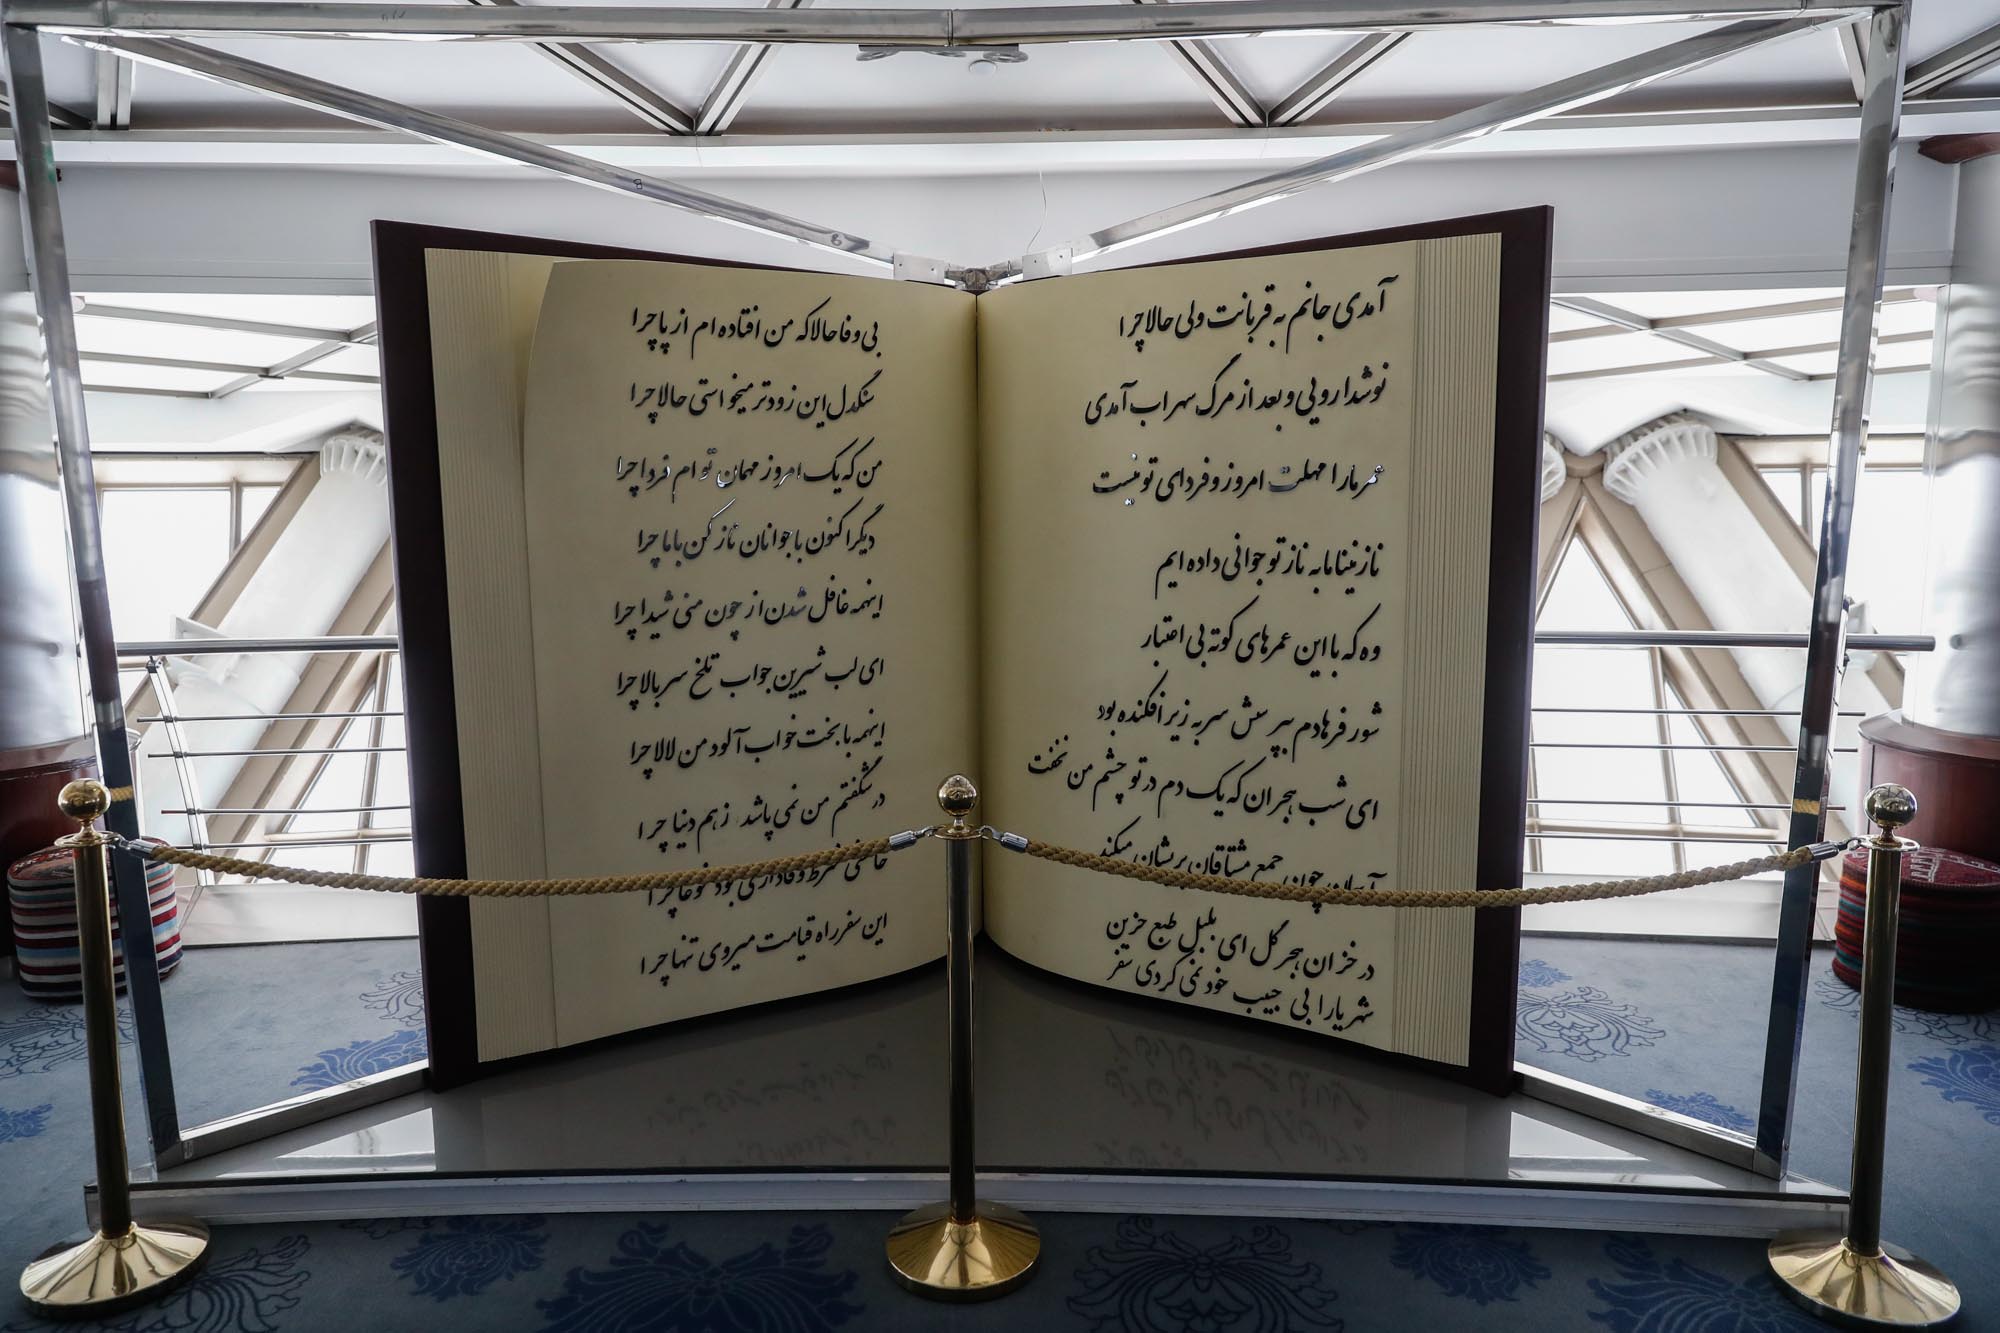 آمدی جانم به قربانت ولی حالا چرا
نوشدارویی و بعد از مرگ سهراب آمدی
عمر ما را مهلت امروز و فردای تو نیست
نازنینا ما به ناز تو جوانی داده ایم
وه که با این عمرهای کوته بی اعتبار
شور فرهادم بپرسش سر به زیر افکنده بود
ای شب هجران که یک دم در تو چشم من نخفت
آسمان چون جمع مشتاقان پریشان میکند
در خزان هجر گل ای بلبل طبع حزین
شهریارا بی حبیب خود نمی کردی سفر
بی وفا حالا که من افتاده ام از پا چرا
سنگدل این زودتر میخواستی حالا چرا
من که یک امروز مهمان تو ام فردا چرا
دیگر اکنون با جوانان ناز کن با ما چرا
اینهمه غافل شدن از چون منی شیدا چرا
ای لب شیرین جواب تلخ سر بالا چرا
اینهمه با بخت خواب آلود من لالا چرا
در شگفتم من نمی پاشد ز هم دنیا چرا
خامشی شرط وفاداری بود غوغا چرا
این سفر راه قیامت میروی تنها چرا